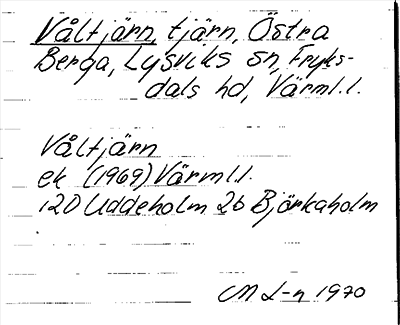 Våltjärn, tjärn, Östra
Berga, Lysviks sn, Fryks-
dals hd, Värml.l.
Våltjärn
ek (1969) Värml.l.
12D Uddeholm 2b Björkaholm
CM L-n 1970